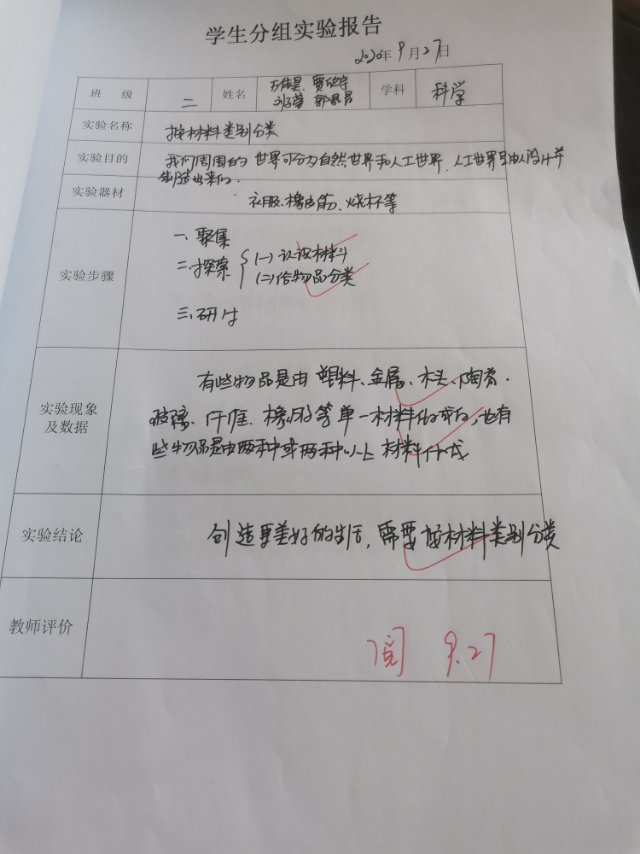 学生分组实验报告
2020年9月27日
班 级 二 姓名 学科 科学
实验名称 按材料类别分类
实验目的 我们周围的世界可分为自然世界和人工世界，人工世界是由人设计并
制造出来的。
实验器材 衣服、橡皮筋、烧杯等
实验步骤
一、聚焦
二、探索 (一)认识材料
(二)给物品分类
三、研讨
实验现象及数据
有些物品是由塑料、金属、木头、陶瓷、
玻璃、纤维、橡胶等单一材料做成的，也有
些物品是由两种或两种以上材料做成
实验结论 创造更美好的生活，需要按材料类别分类
教师评价
阅 9.27